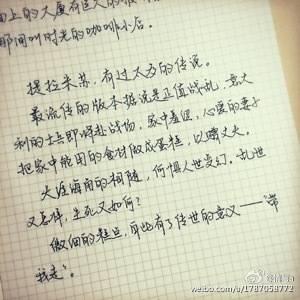 面上的大厦有巨大的
那间叫时光的咖啡小店。
提拉米苏,有过太多的传说。
最流传的版本据说是正值战乱,意大
利的士兵即将赴战场,家中贫困,心爱的妻子
把家中能用的食材做成蛋糕,以赠丈夫。
天涯海角的相随,何惧人世变幻。乱世
又怎样,生死又如何?
微细的糕点,自此有了传世的意义——"带
我走"。
weibo.com/u/1787058772